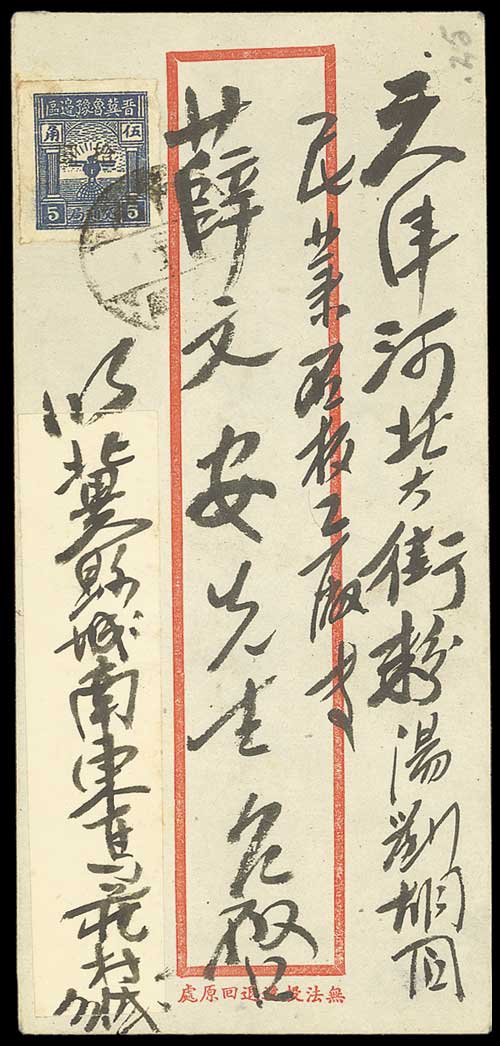 天津河北大街粉湯劉胡同
民業
薛文安先生台啟
冀縣城南東馬莊村
晋冀魯豫邊區
伍角
5 5
無法投遞退回原處
.25